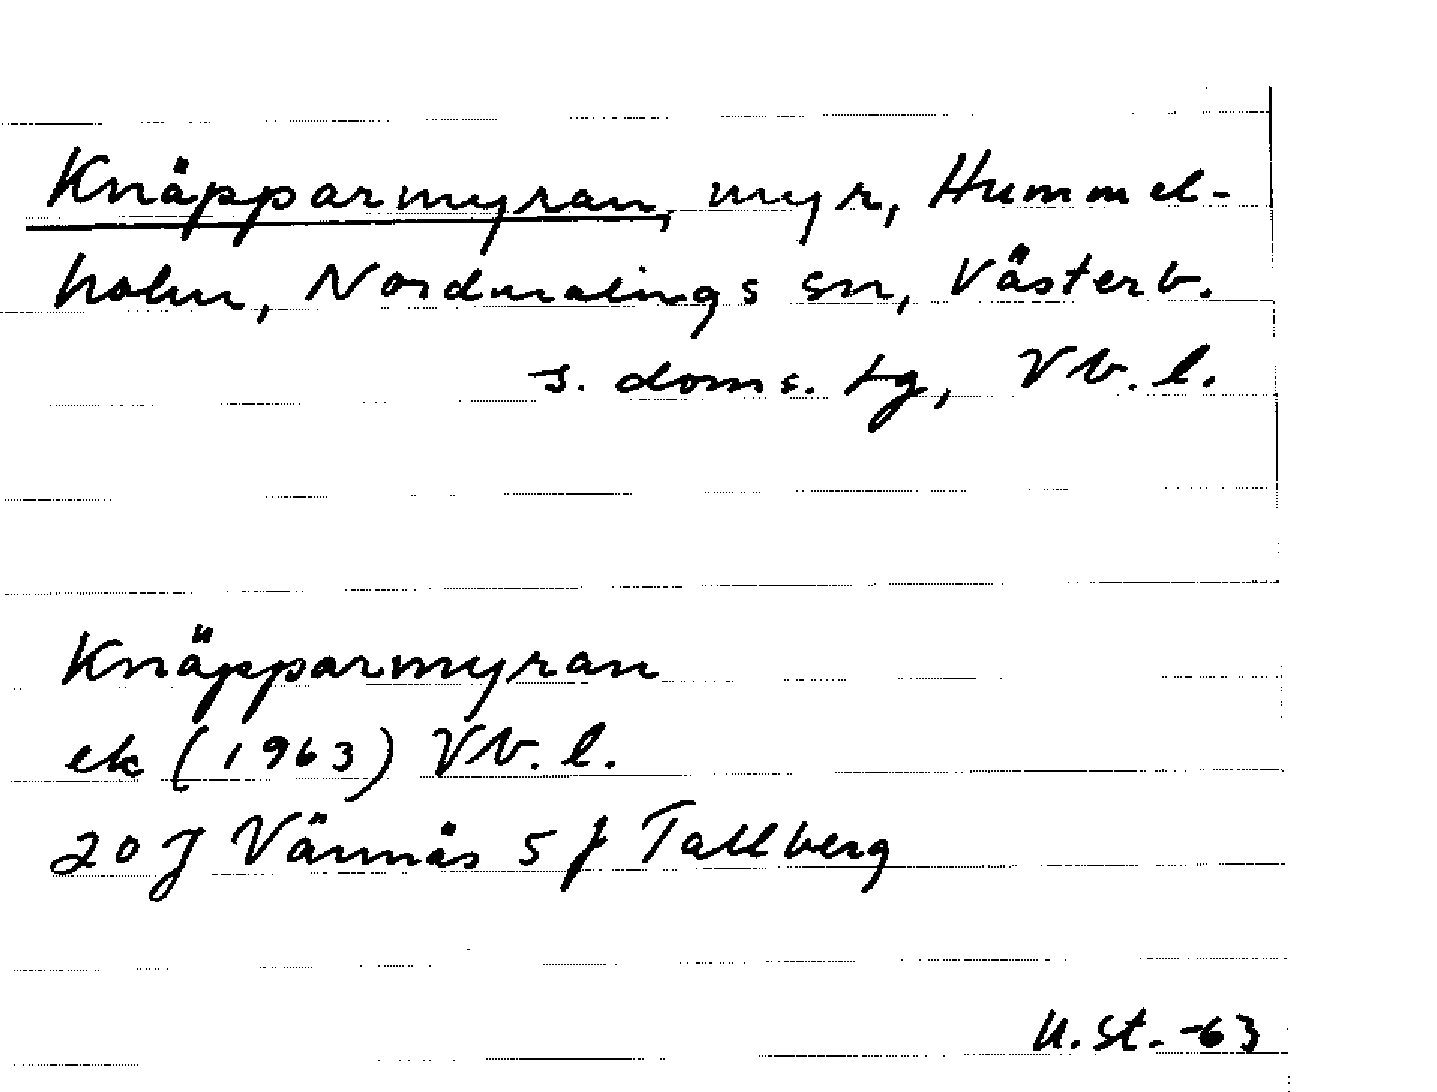 Knäpparmyran, myr, Hummel-
holm, Nordmalings sn, Västerb.
s. doms. tg, Vb. l.
Knäpparmyran
ek (1963) Vb. l.
20 J Vännäs 5 f Tallberg
U. St. -63